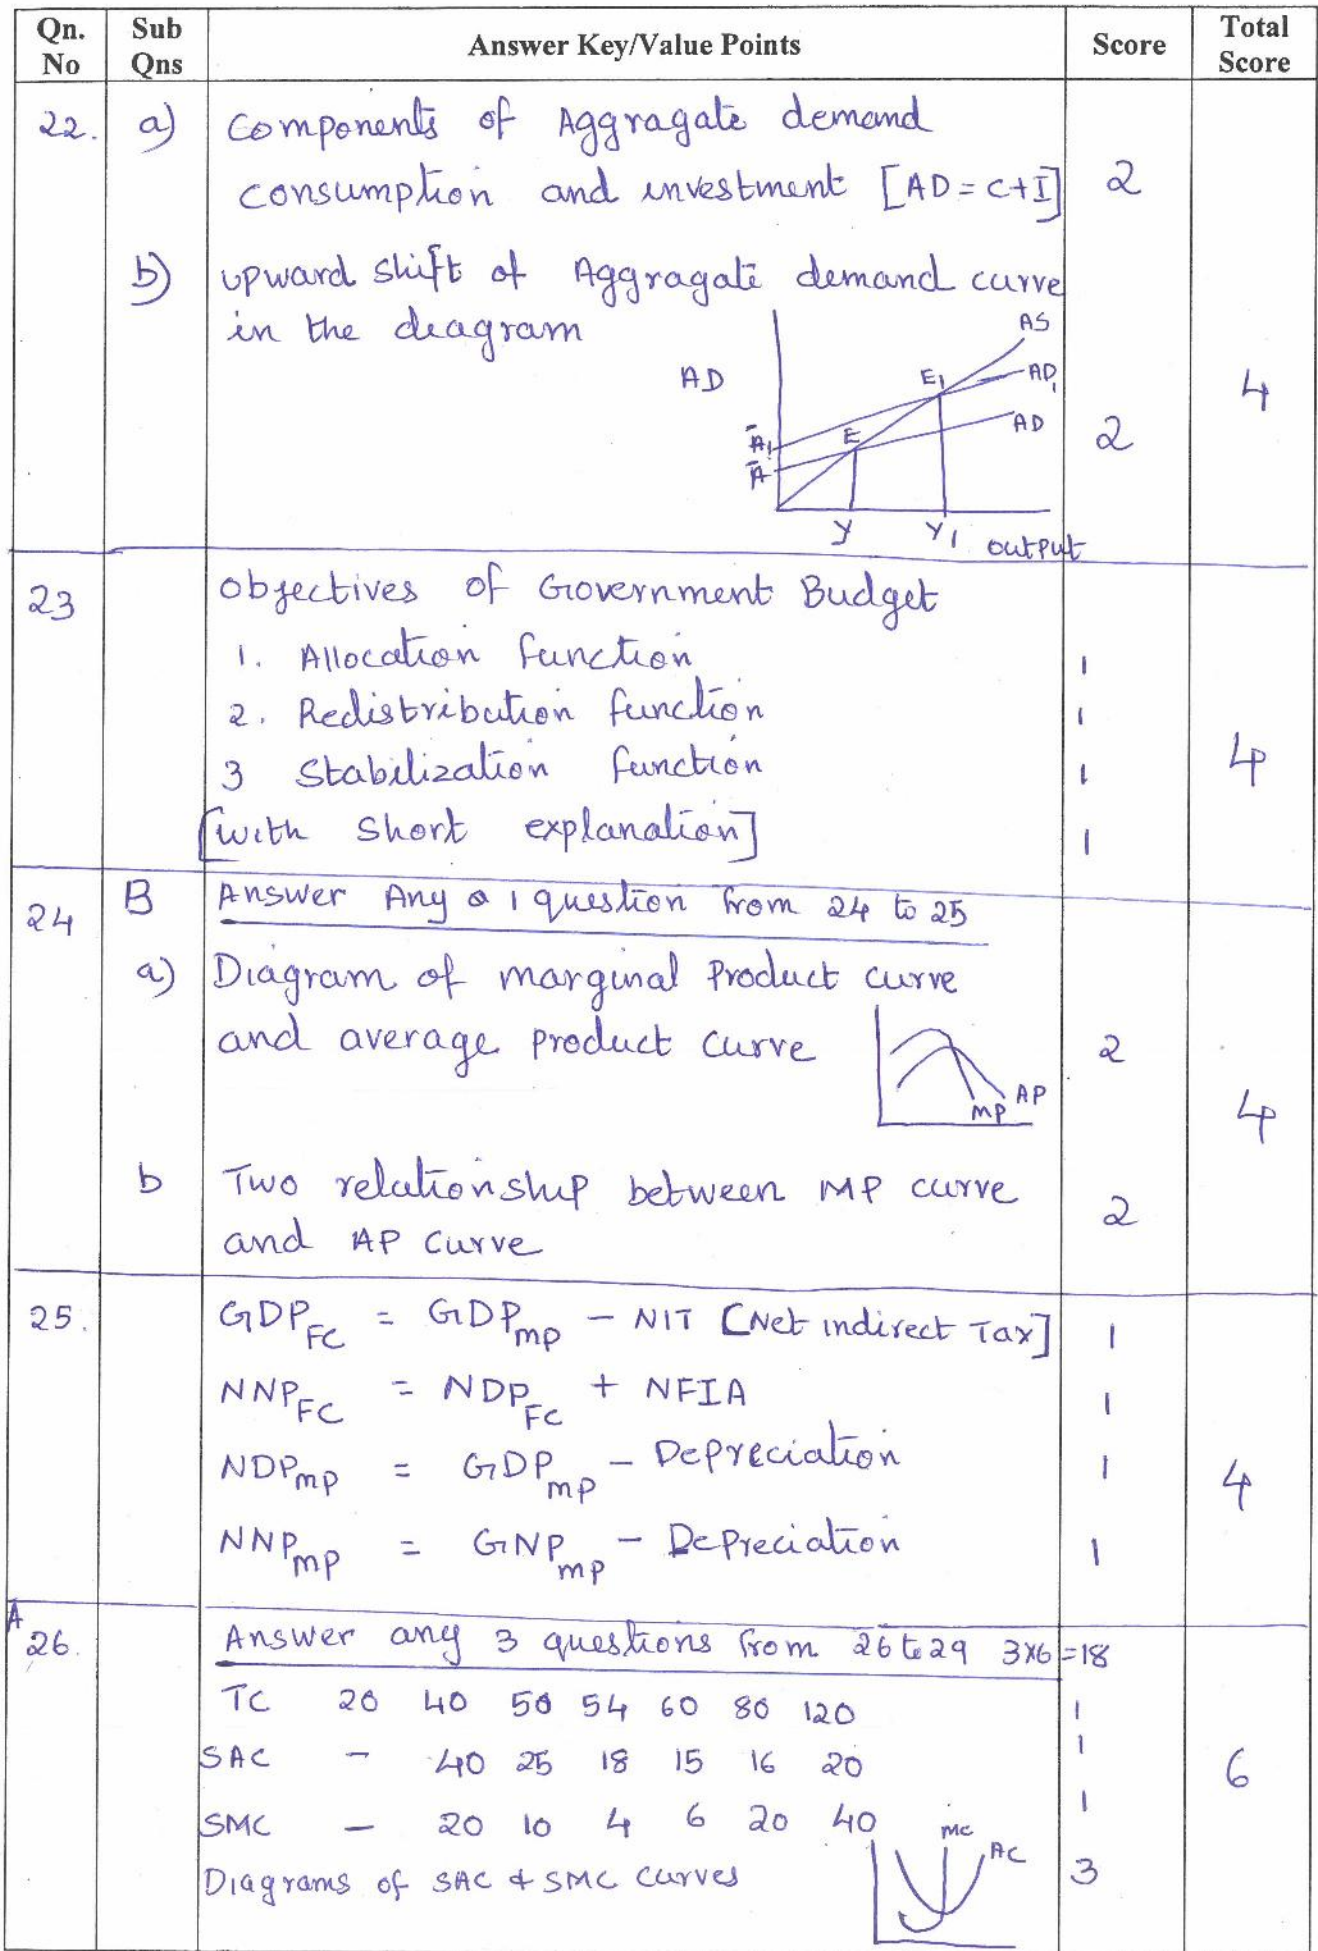 Qn. No Sub Qns Answer Key/Value Points Score Total Score
22. a) Components of Aggragate demand
consumption and investment [AD = C+I] 2
b) upward shift of Aggragate demand curve
in the deagram
AS
AD E1 AD1
4
Ā1 E AD 2
Ā
y Y1 output
23 objectives of Government Budget
1. Allocation function 1
2. Redistribution function 1
3 Stabilization function 1 4
[with short explanation] 1
24 B Answer Any 1 question from 24 to 25
a) Diagram of marginal Product curve
and average product curve 2
MP AP 4
b Two relationship between MP curve
and AP curve 2
25. GDP FC = GDP mp - NIT [Net indirect Tax] 1
NNP FC = NDP FC + NFIA 1
NDP mp = GDP mp - Depreciation 1 4
NNP mp = GNP mp - Depreciation 1
A
26. Answer any 3 questions from 26 to 29 3x6=18
TC 20 40 50 54 60 80 120 1
SAC - 40 25 18 15 16 20 1 6
SMC - 20 10 4 6 20 40 1
MC AC
Diagrams of SAC & SMC curves 3